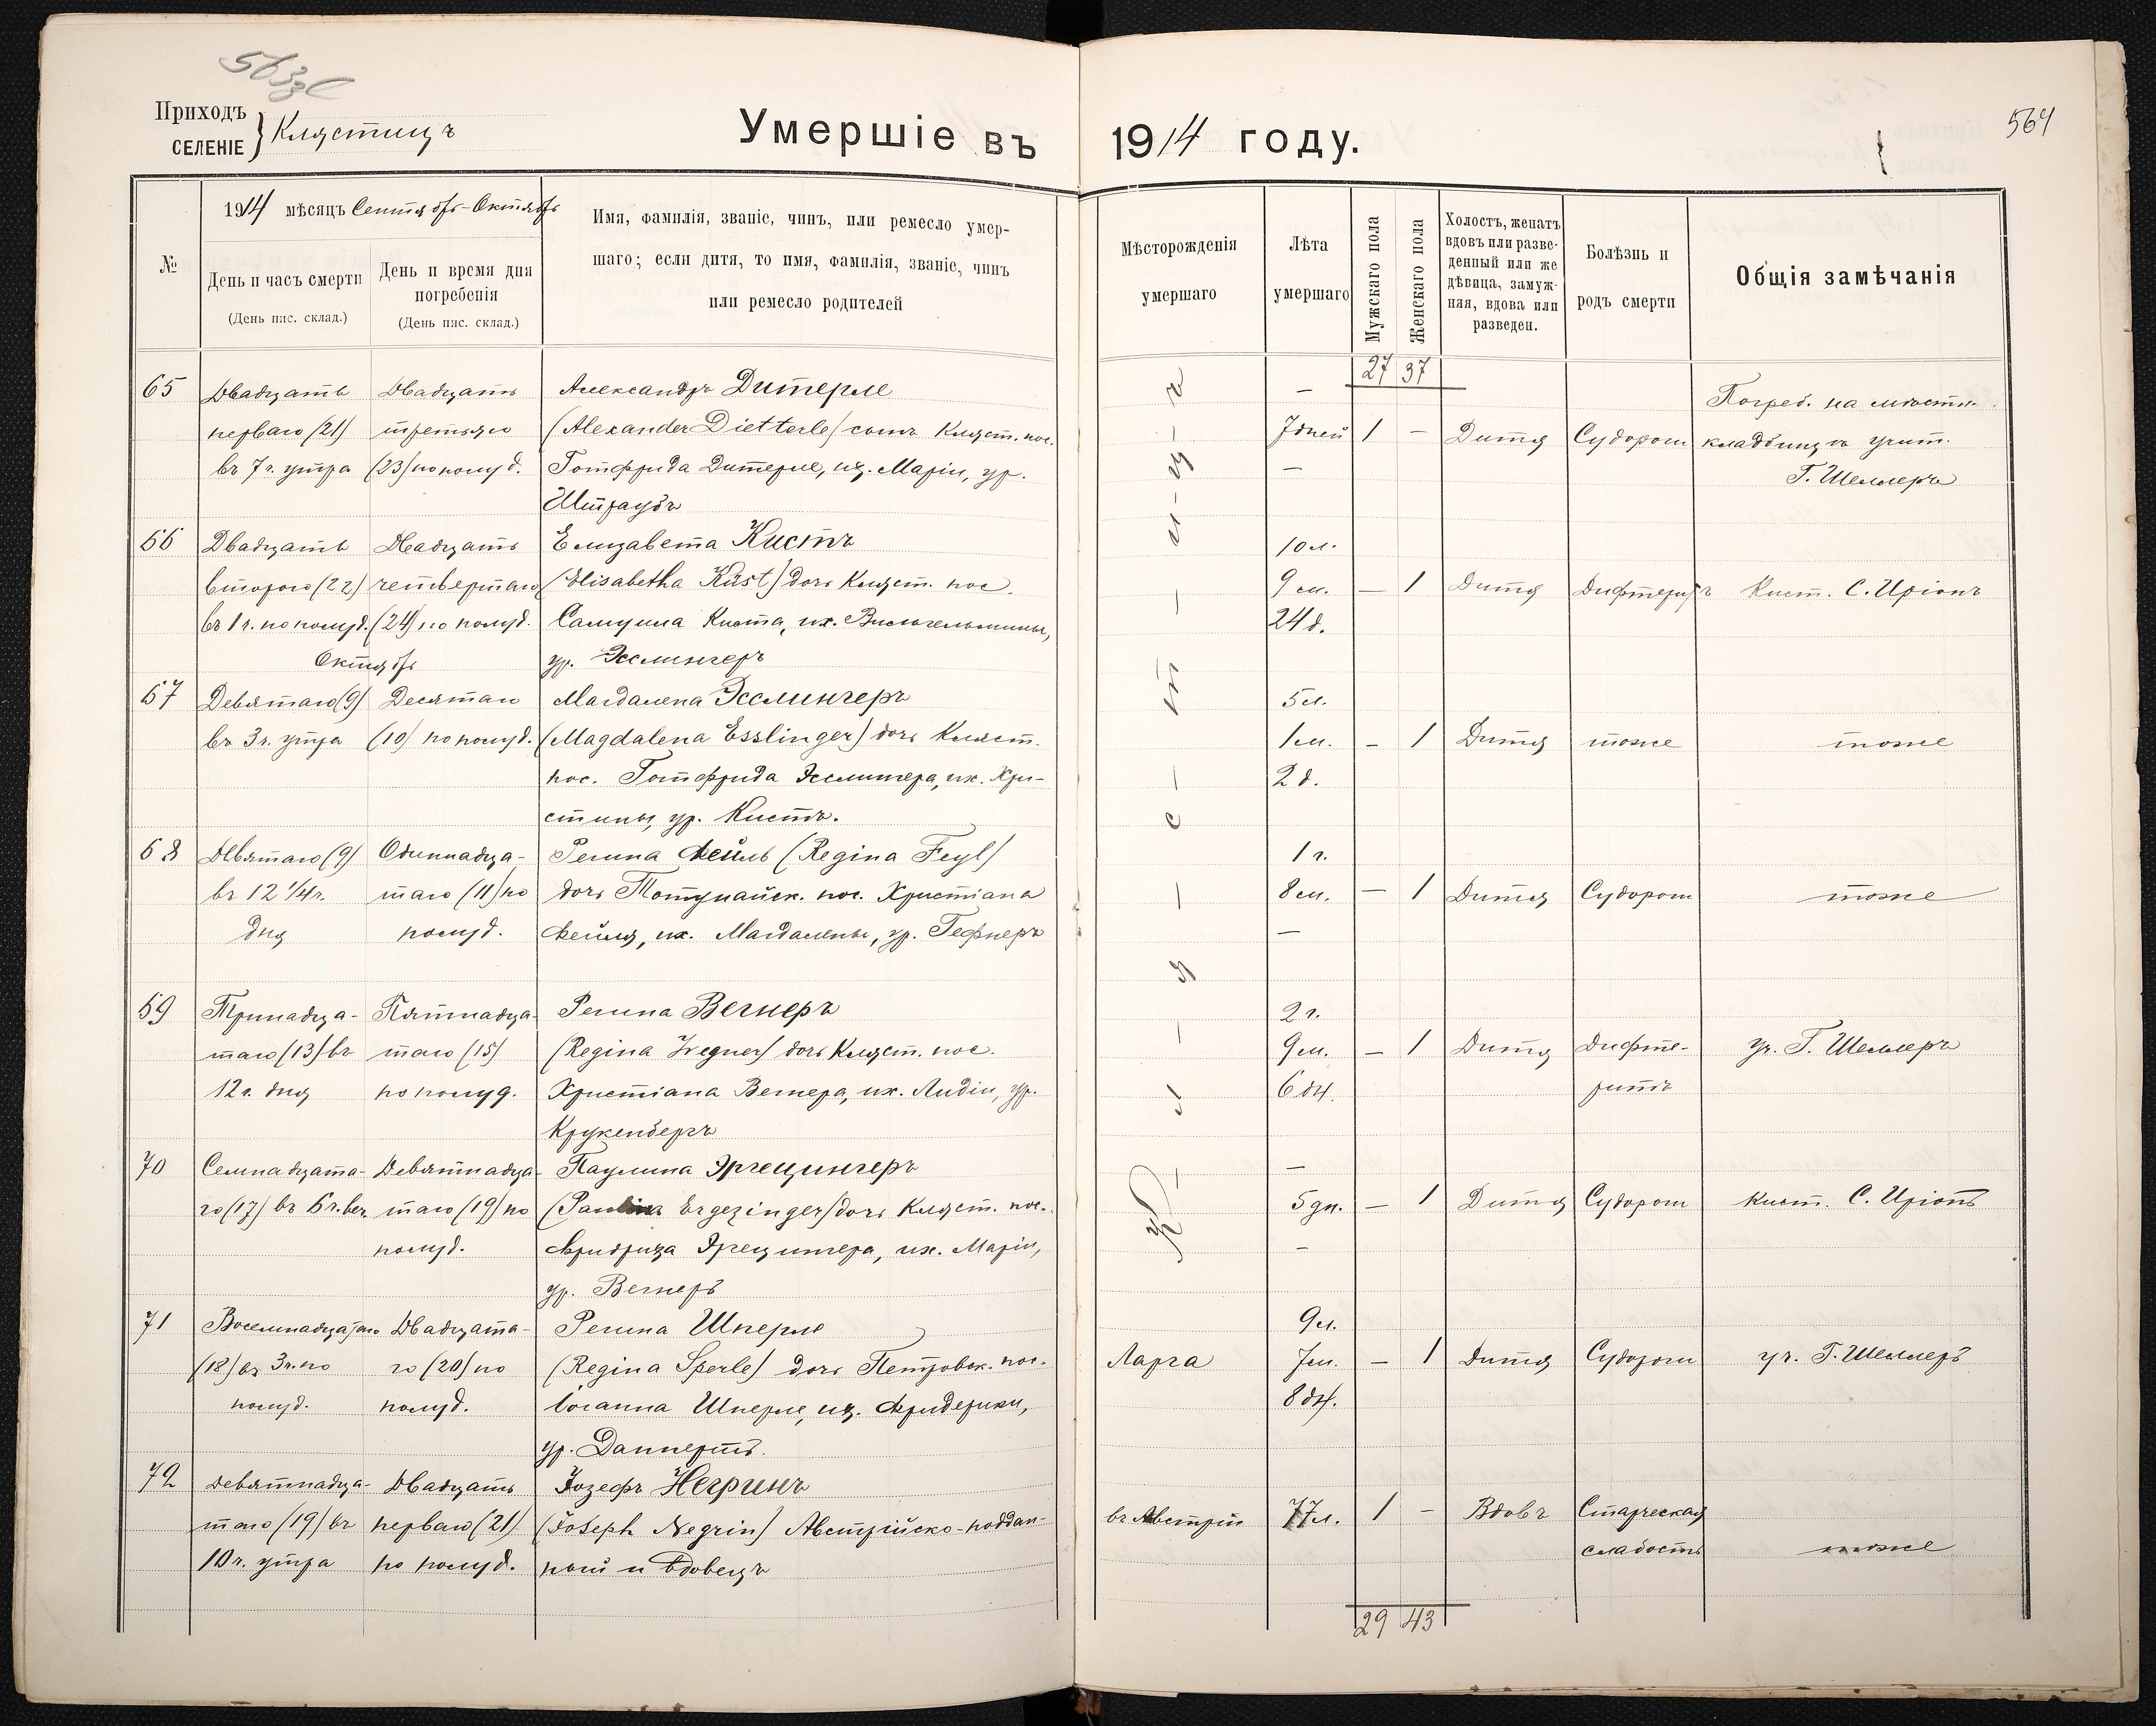 Приходъ
селеніе } Клястицъ
Умершіе въ 1914 году.
564
№
1914 мѣсяцъ Сентябрь-Октябрь
День и часъ смерти
(День пис. склад.)
День и время дня погребенія
(День пис. склад.)
Имя, фамилія, званіе, чинъ, или ремесло умер-
шаго; если дитя, то имя, фамилія, званіе, чинъ
или ремесло родителей
Мѣсторожденія
умершаго
Лѣта
умершаго
Мужскаго пола
Женскаго пола
Холостъ, женатъ
вдовъ или разве-
денный или же
дѣвица, замуж-
няя, вдова или
разведен.
Болѣзнь и
родъ смерти
Общія замѣчанія
27 37
К-л-я-с-т-и-ц-ъ
65 Двадцать Двадцать Александръ Дитерле —
Погреб. на мѣстн.
перваго (21) третьяго (Alexander Dietterle) сынъ Кляст. пос. 7 дней 1 — Дитя Судороги кладбищѣ учит.
въ 7 ч. утра (23) по полуд. Готфрида Дитерле, иж. Маріи, ур. — Г. Шеллеръ
Штраубъ
66 Двадцать Двадцать Елизавета Кистъ 10 л.
второго (22) четвертаго (Elisabetha Küst) дочь Кляст. пос. 9 м. — 1 Дитя Дифтеритъ Кист. С. Иріонъ
въ 1 ч. по полуд. (24) по полуд. Самуила Киста, иж. Вильгельмины, 24 д.
Октябрь ур. Эсслингеръ
67 Девятаго (9) Десятаго Магдалена Эсслингеръ 5 л.
въ 3 ч. утра (10) по полуд. (Magdalena Esslinger) дочь Кляст. 1 м. — 1 Дитя тоже тоже
пос. Готфрида Эсслингера, иж. Хри- 2 д.
стины, ур. Кистъ.
68 Девятаго (9) Одиннадца- Регина Фейль (Regina Feyl) 1 г.
въ 12 1/4 ч. таго (11) по дочь Потупайск. пос. Христіана 8 м. — 1 Дитя Судороги тоже
дня полуд. Фейля, иж. Магдалены, ур. Гефнеръ —
69 Тринадца- Пятнадца- Регина Вегнеръ 2 г.
таго (13) въ таго (15) (Regina Wegner) дочь Кляст. пос. 9 м. — 1 Дитя Дифте- уч. Г. Шеллеръ
12 ч. дня по полуд. Христіана Вегнера, иж. Лидіи, ур. 6 дн. ритъ
Крукенбергъ
70 Семнадцата- Девятнадца- Паулина Эргецингеръ —
го (17) въ 6 ч. веч. таго (19) по (Paulina Ergezinger) дочь Кляст. пос. 5 дн. — 1 Дитя Судороги Кист. С. Иріонъ
полуд. Фридриха Эргецингера, иж. Маріи, —
ур. Вегнеръ
71 Восемнадцатаго Двадцата- Регина Шперле 9 л.
(18) въ 3 ч. по го (20) по (Regina Sperle) дочь Петровск. пос. Ларга 7 м. — 1 Дитя Судороги уч. Г. Шеллеръ
полуд. полуд. Іоганна Шперле, иж. Фридерики, 8 дн.
ур. Даннертъ.
72 Девятнадца- Двадцать Іозефъ Негринъ
таго (19) въ перваго (21) (Joseph Negrin) Австрійско-поддан- въ Австріи 77 л. 1 — Вдовъ Старческая
10 ч. утра по полуд. ный и вдовецъ слабость тоже
29 43